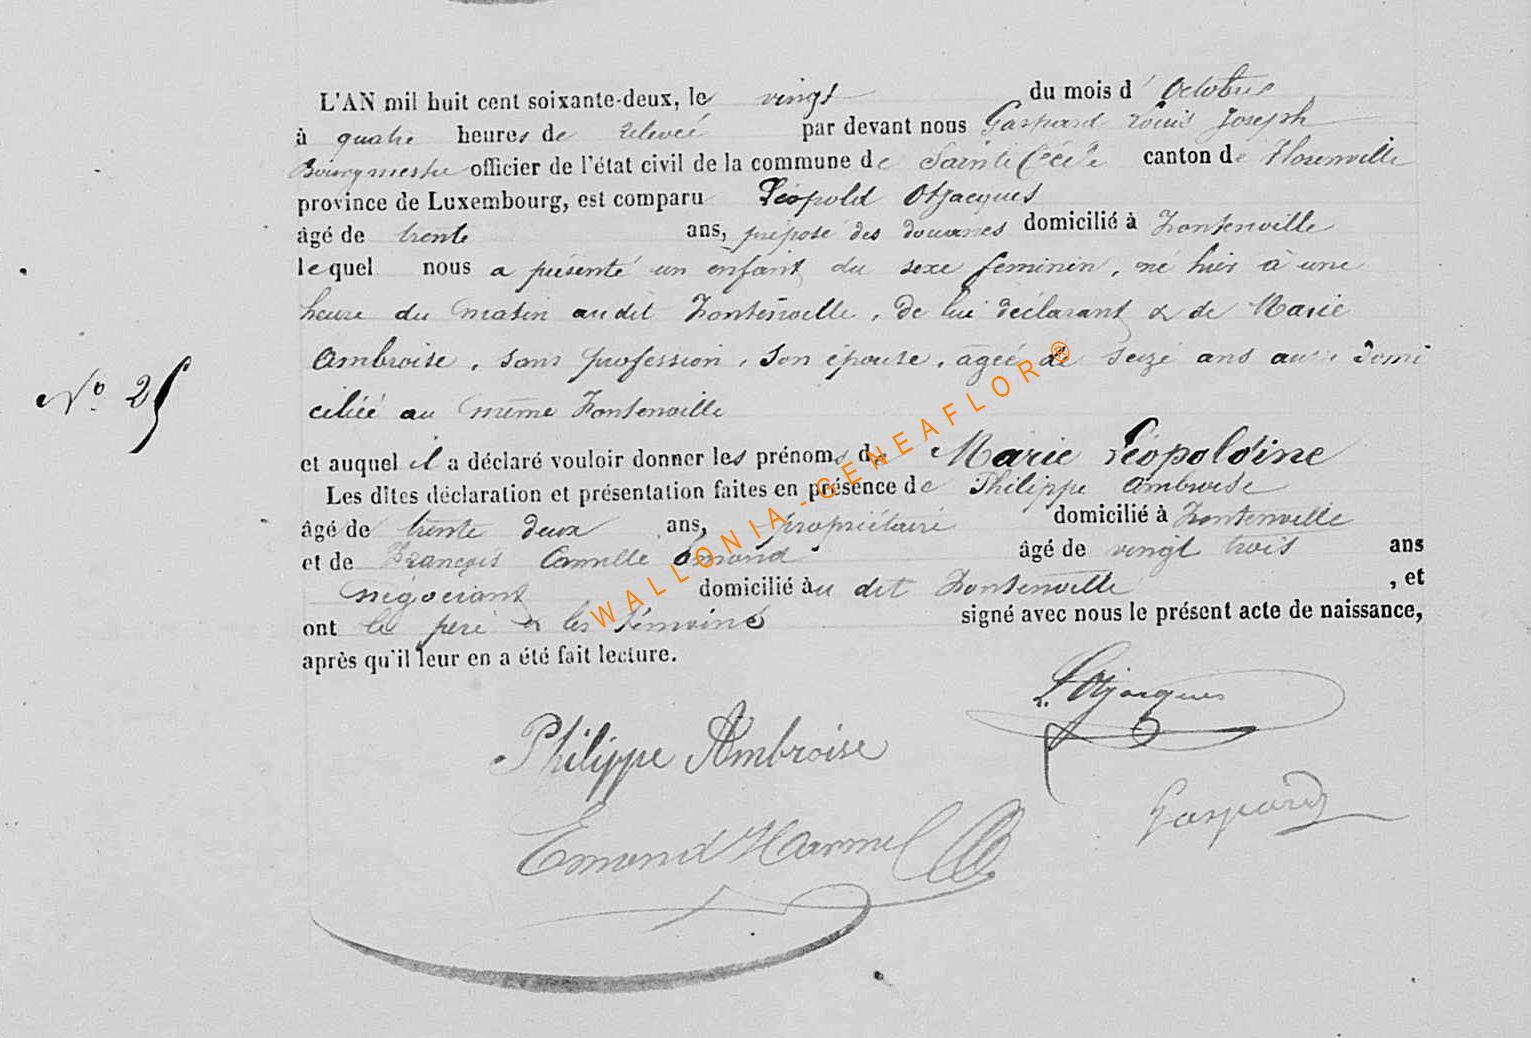 L'AN mil huit cent soixante-deux, le vingt du mois d'Octobre
à quatre heures de relevée par devant nous Gaspard Louis Joseph
Bourgmestre officier de l'état civil de la commune de Sainte Cécile canton de Florenville
province de Luxembourg, est comparu Léopold Otjacques
âgé de trente ans, préposé des douanes domicilié à Fontenville
lequel nous a présenté un enfant du sexe feminin, né hier à une
heure du matin au dit Fontenville, de lui déclarant & de Marie
Ambroise, sans profession, son épouse, agée de seize ans aussi domi
ciliée au même Fontenville
Nº 25
et auquel il a déclaré vouloir donner les prénoms de Marie Léopoldine
Les dites déclaration et présentation faites en présence de Philippe Ambroise
âgé de trente deux ans, propriétaire domicilié à Fontenville
et de François Camille Emond âgé de vingt trois ans
négociant domicilié au dit Fontenville, et
ont le père & les témoins signé avec nous le présent acte de naissance,
après qu'il leur en a été fait lecture.
L. Otjacques
Philippe Ambroise
Gaspard
Emond Harmel
WALLONIA-GENEAFLOR®